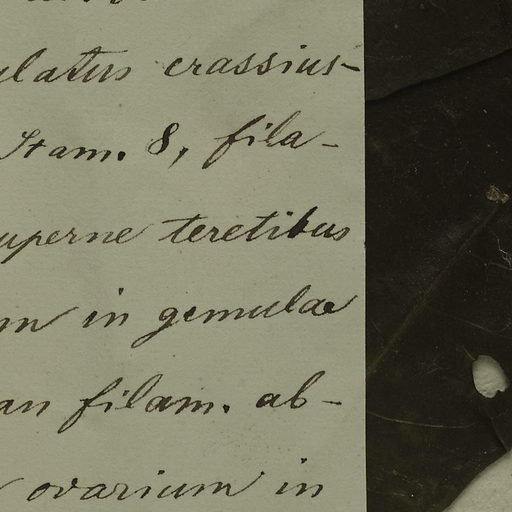 ulatus crassius-
Stam. 8, fila-
uperne teretibus
m in gemulae
an filam. ab-
ovarium in